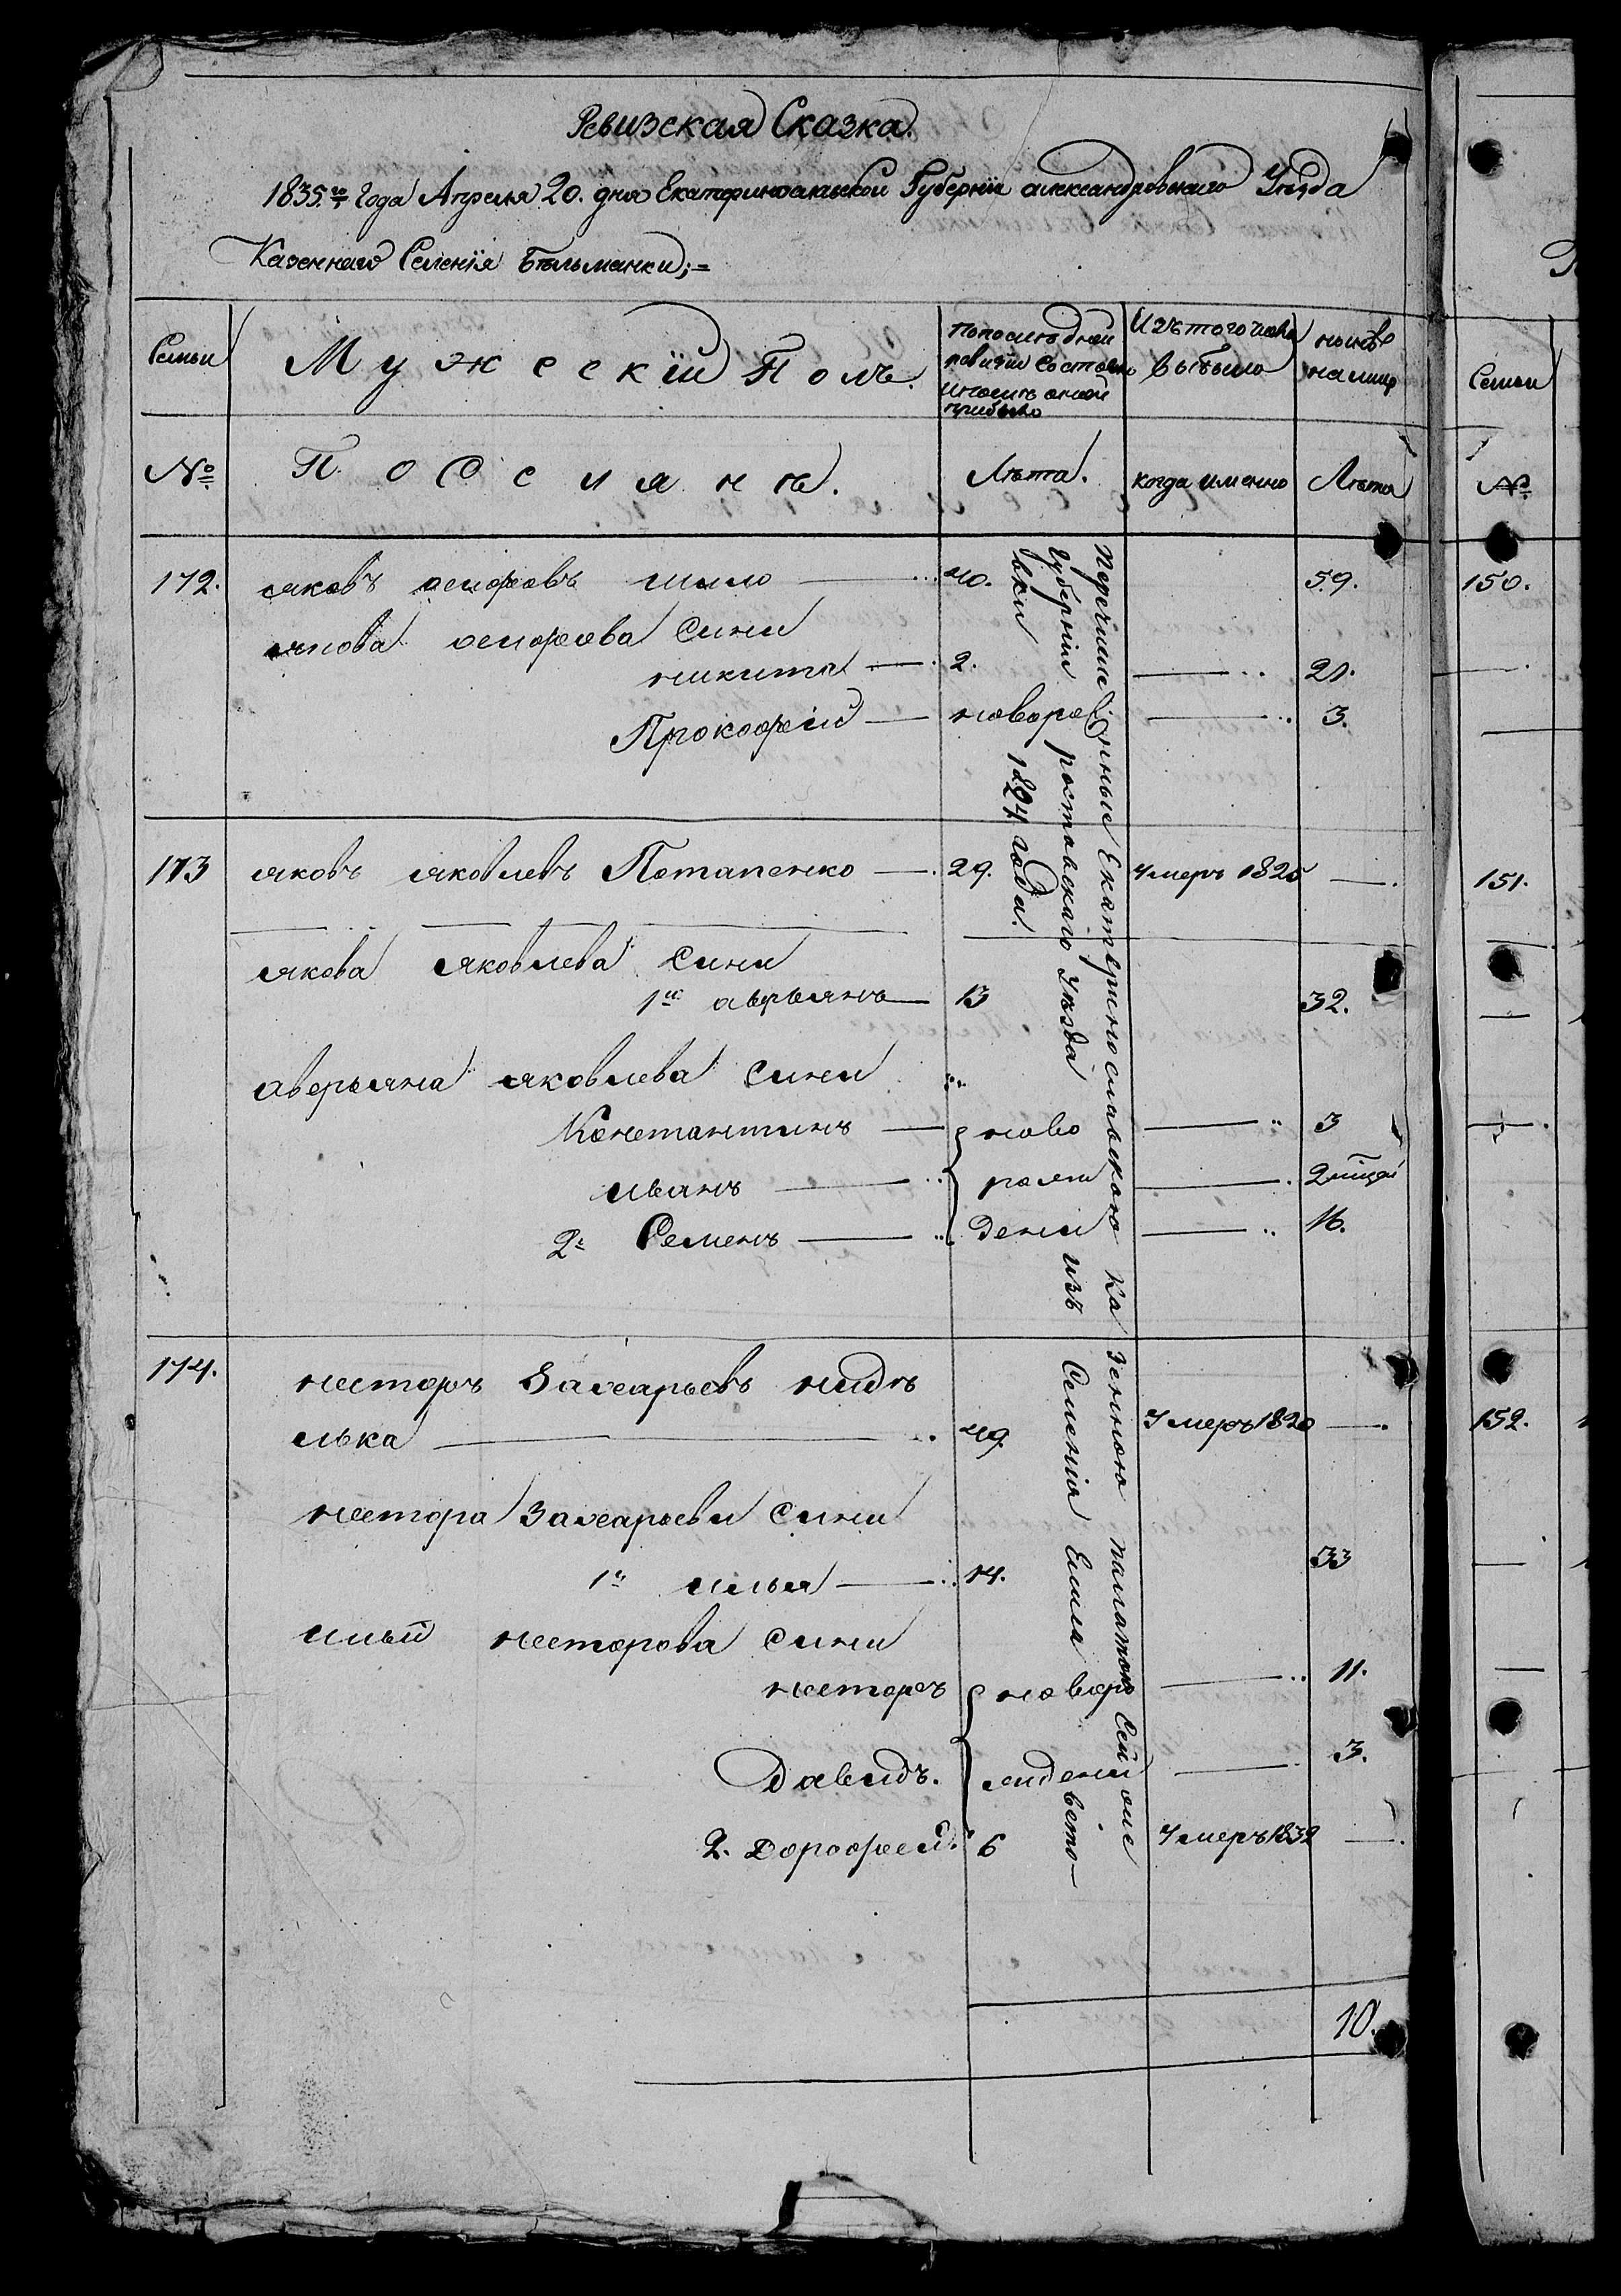 Ревизская Сказка.
1835го Года Апреля 20. дня Екатеринославской Губернïи александровскаго Уезда
Казеннаго Селенïя Бельманки;=
Семьи
Мужескïй Полъ.
По последней
ревизïи состояло
и после оной
прибыло
Изъ того числа
выбыло
ныне
на лицо
Семьи
№
Поселяне.
Лета.
когда именно
Лета
№
172. яковъ осифовъ шило 40. 59. 150.
якова осифова сини
никита 2. 21.
Прокофей новорож 3.
173 яковъ яковлевъ Потапенко 29. Умеръ 1825 151.
якова яковлева сини
1й аврьянъ 13 32.
аверьяна яковлева сини
Констянтинъ ново 3
иванъ рож 2 мцов
2й Семенъ дени 16.
174. несторъ Захарьевъ нидѣ
лька 49. Умеръ 1820 152.
нестора Захарьеви сини
1й илья 14. 33
ильи несторова сини
несторъ новоро 11.
Давидъ. жидени 3.
2. Дорофей. 6 Умеръ 1832
Перечисленные Екатеринославскою казенною палатою сей оне
губернïи ростовскаго Уезда изъ Селенïя Елисавето-
вки 1824 года.
10.